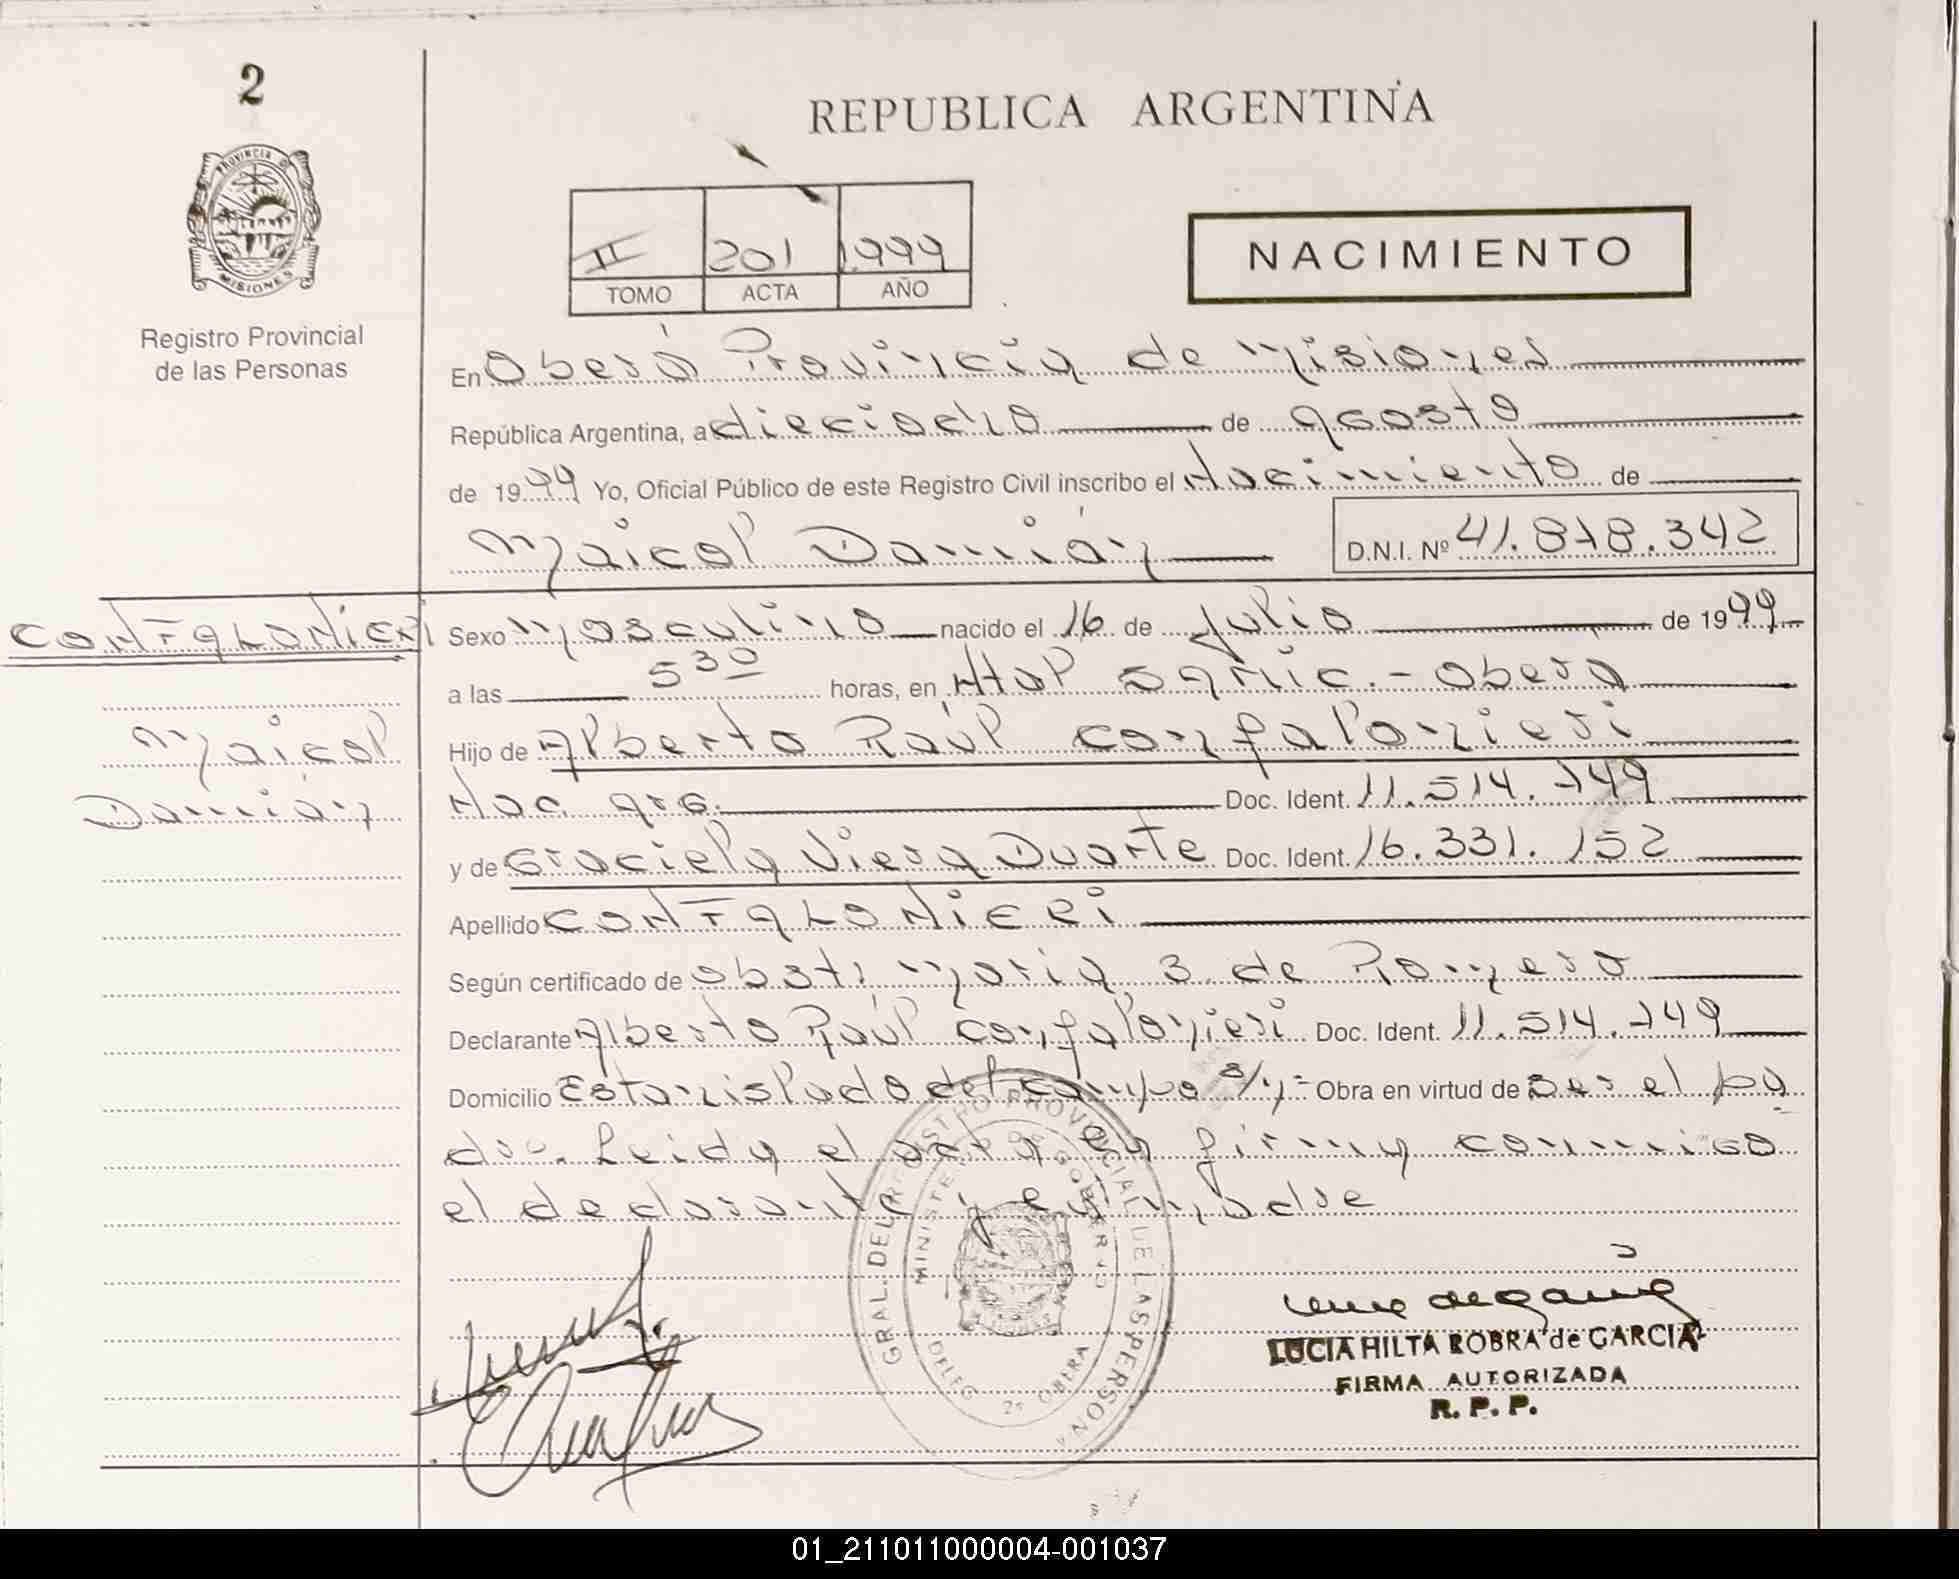 2
REPUBLICA ARGENTINA
PROVINCIA DE
MISIONES
Registro Provincial
de las Personas
II 201 1.999
TOMO ACTA AÑO
NACIMIENTO
En Oberá Provincia de Misiones
República Argentina, a dieciocho de agosto
de 1999 Yo, Oficial Público de este Registro Civil inscribo el Nacimiento de
Maicol Damián D.N.I. Nº 41.818.342
CONFALONIERI
Maicol
Damián
Sexo Masculino nacido el 16 de Julio de 1999
a las 5 30 horas, en Htal Samic.- Oberá
Hijo de Alberto Raúl Confalonieri
Nac. arg. Doc. Ident. 11.514.749
y de Graciela Viera Duarte Doc. Ident. 16.331.152
Apellido CONFALONIERI
Según certificado de obst. María S. de Romero
Declarante Alberto Raúl Confalonieri Doc. Ident. 11.514.749
Domicilio Estanislado del Campo s/n- Obra en virtud de ser el pa
dre. Leida el acta en firma conmigo
el declarante y la madre
GRAL. DEL REGISTRO PROVINCIAL DE LAS PERSONA
MINISTE DE GOBIERNO
DELEG 2º OBERA
LUCIA HILTA ROBRA de GARCIA
FIRMA AUTORIZADA
R. P. P.
01_211011000004-001037